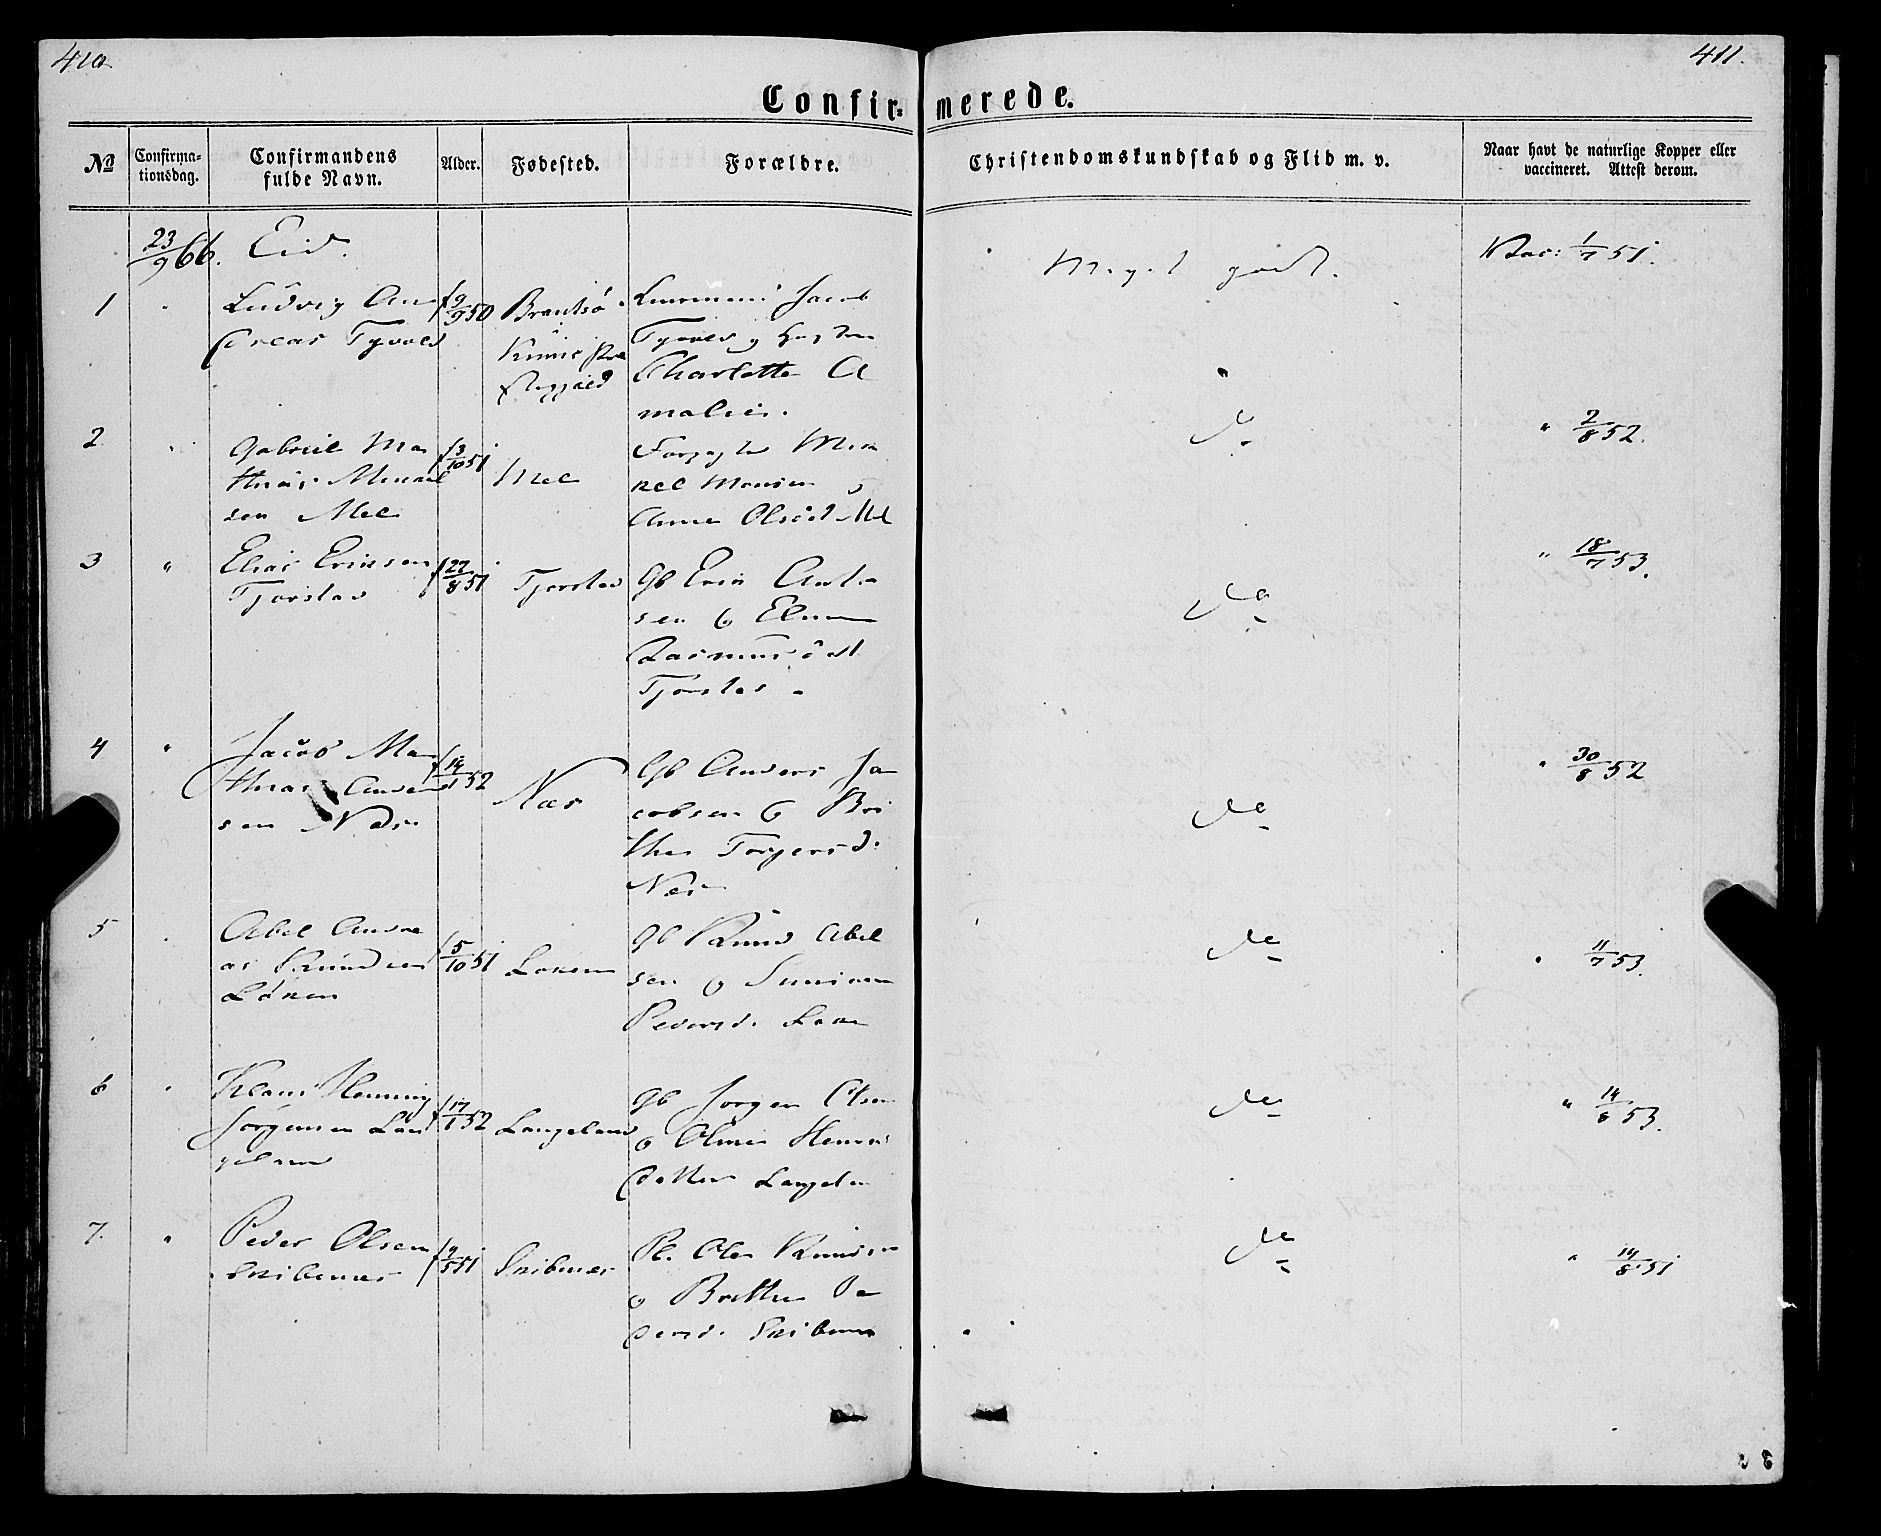 410.
411.
Confir-
merede.
No
Confirma-
tionsdag.
Confirmandens
fulde Navn.
Alder.
Fødested.
Forældre.
Christendomskundskab og Flid m. v.
Naar havt de naturlige Kopper eller
vaccineret. Attest derom.
23/9 66. Eid.
1 " Ludvig An
dreas Tyvold
f 9/9 50
Kinns Præ
stegjæld
Jacob
Tyvold og Hustru
Charlotte A
malie.
Meget godt.
Vac: 1/7 51.
2. " Gabriel Ma
thias Mikkel
sen Mel
f 3/10 51
Mel
Mik
kel Monsen og
Anne Olsdt Mel
do
" 2/8 52.
3 " Elias Eriksen
Tjørstad
f 22/8 51
Tjørstad
Gb Erik Anta
sen og
Rasmusdt
Tjørstad
do
" 18/7 53.
4 " Jacob Ma
thias Ander
sen Næs
52
Næs
Gb Anders Ja
cobsen og Bri
the Torgersd.
Næs
do
" 30/8 52
5 " Abel Andre
as Knudsen
Løken
f 5/10 51
Løken
Gb Knud Abel
sen og Suniva
Pedersd. Løken
do
" 11/7 53.
6 " Klaus Henning
Jørgensen Lan
geland
f 17/1 52
Langeland
Gb Jørgen Olsen
og Oline
datter Langeland
do
" 14/8 53.
7. " Peder Olsen
Skibenes
f 9/5 51
Skibenes
Pl. Ole Knudsen
og Brithe Pe
dersd. Skibenes
do
" 14/8 51